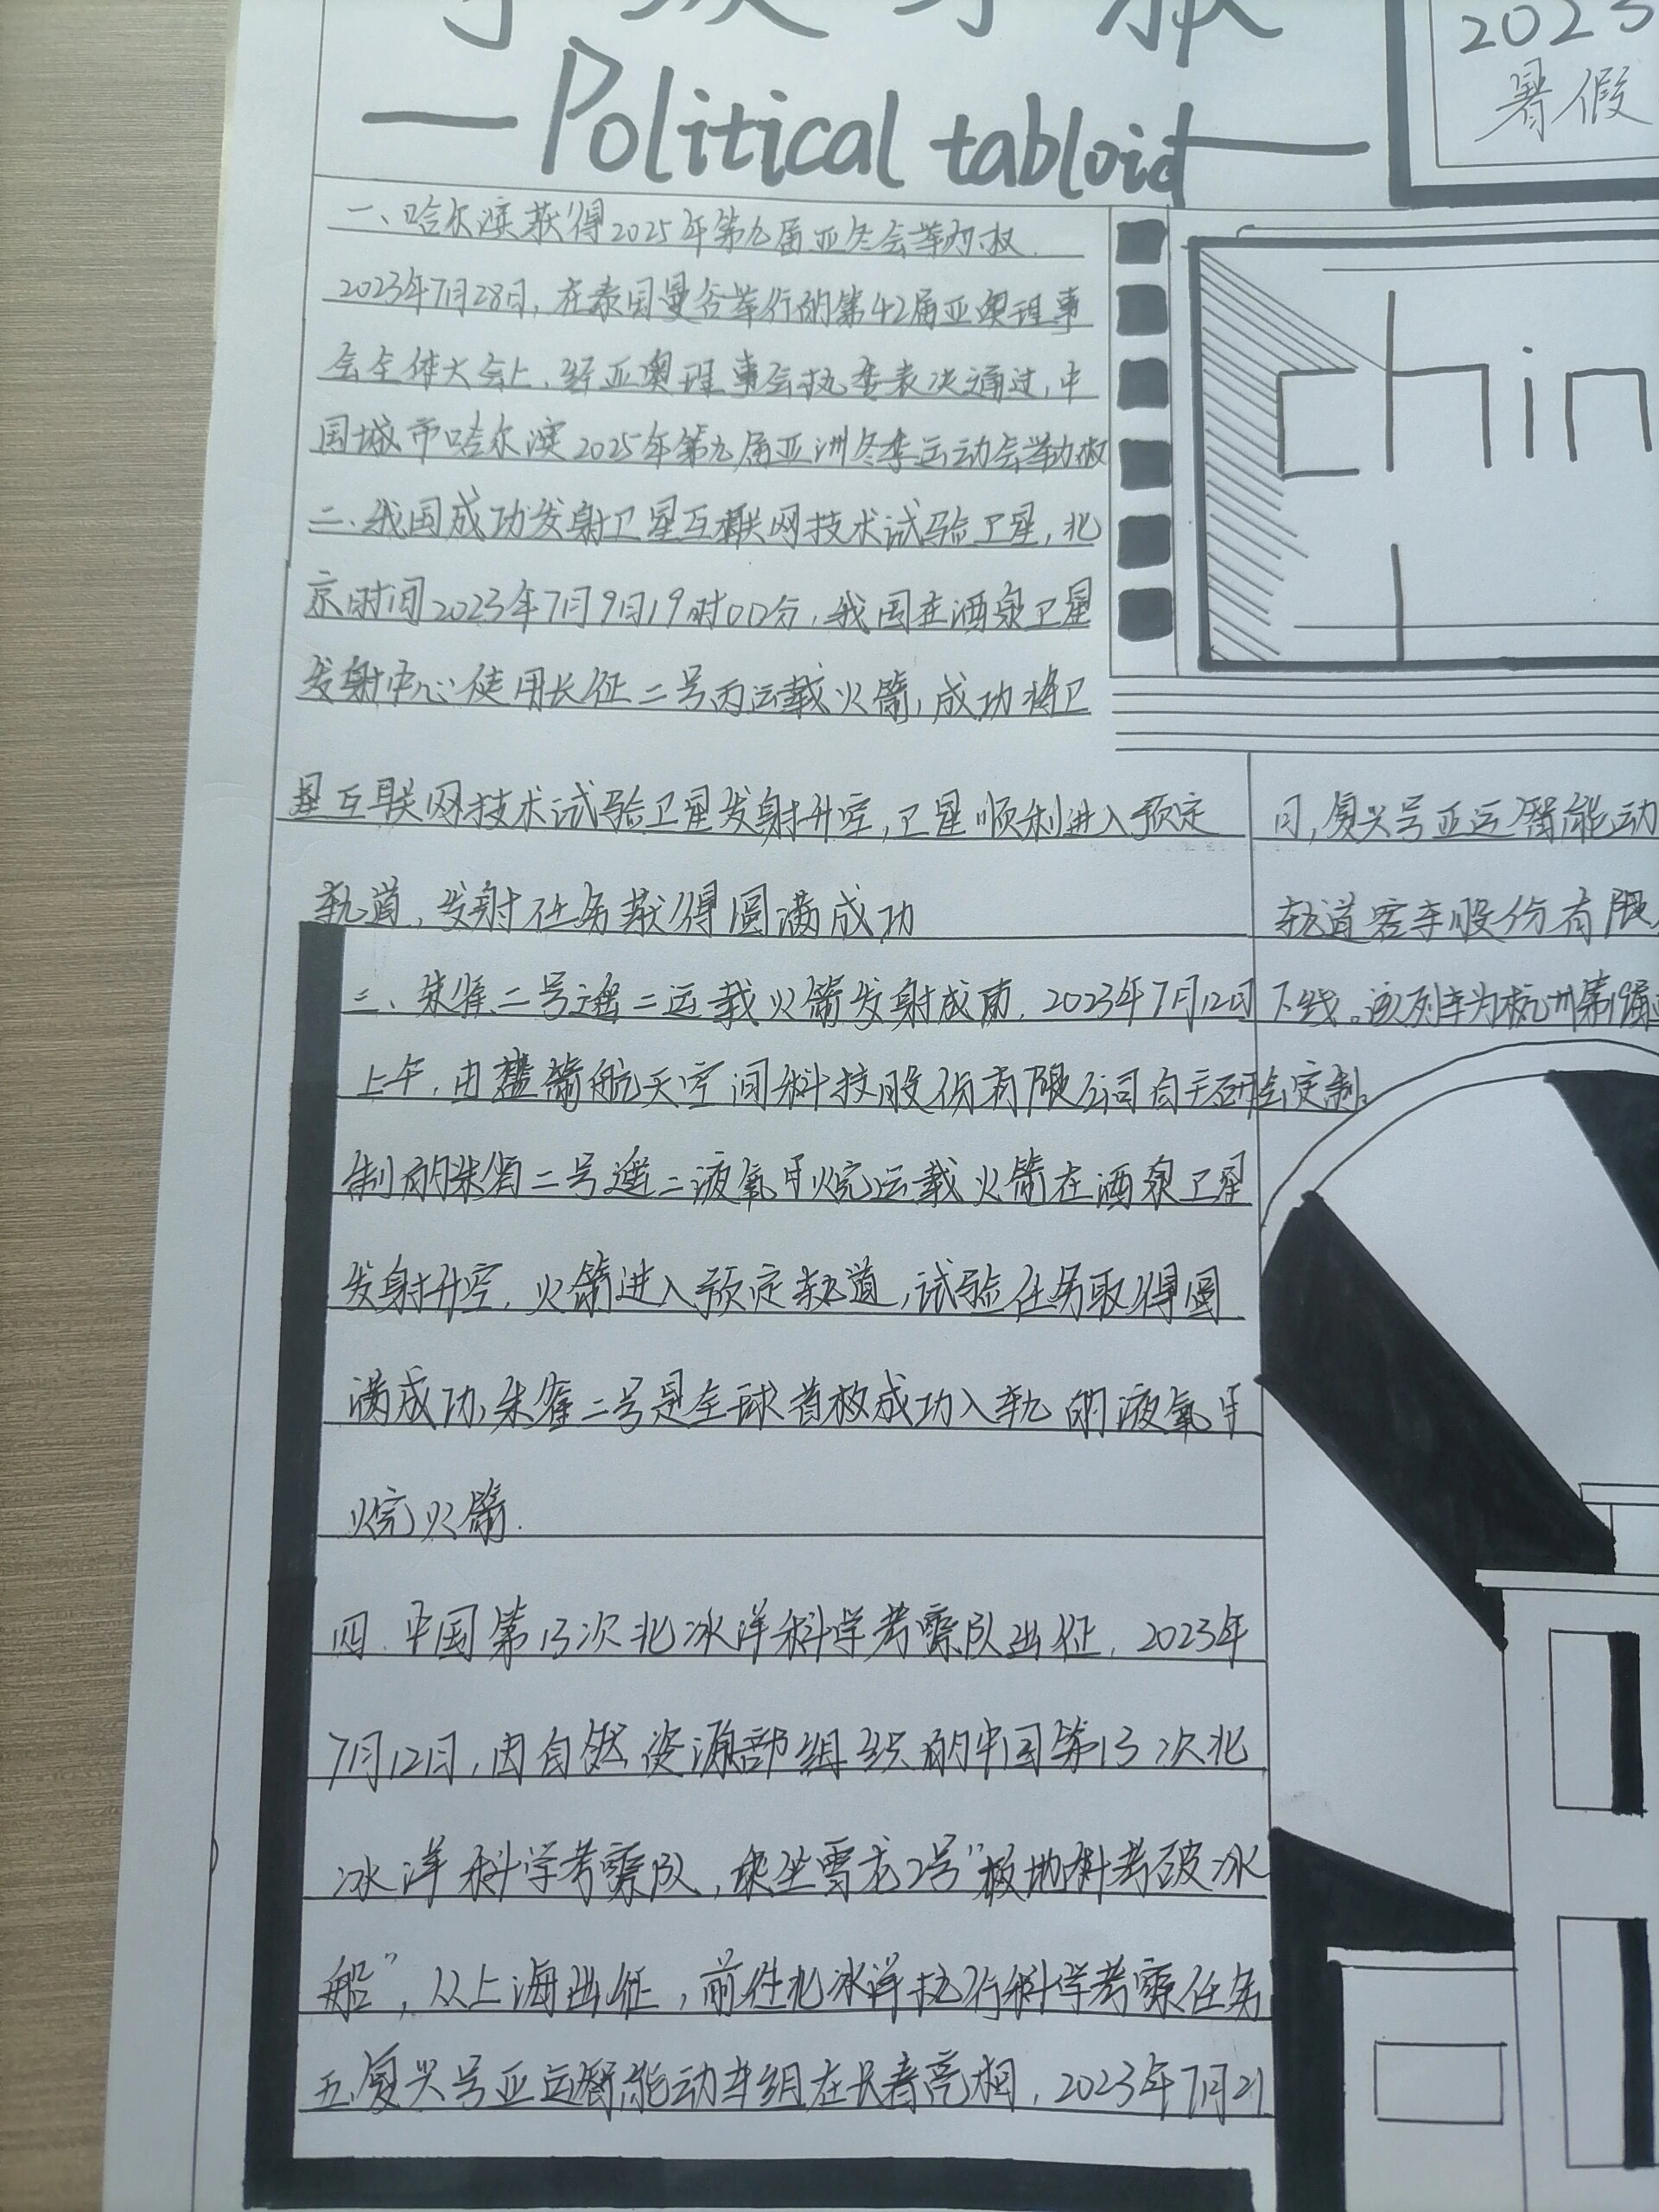 Political tabloid
2023
暑假
一、哈尔滨获得2025年第九届亚冬会举办权.
2023年7月28日,在泰国曼谷举行的第42届亚奥理事
会全体大会上,经亚奥理事会执委表决通过,中
国城市哈尔滨2025年第九届亚洲冬季运动会举办权
二、我国成功发射卫星互联网技术试验卫星,北
京时间2023年7月9日19时00分,我国在酒泉卫星
发射中心使用长征二号丙运载火箭,成功将卫
星互联网技术试验卫星发射升空,卫星顺利进入预定
轨道,发射任务获得圆满成功
三、朱雀二号遥二运载火箭发射成南,2023年7月12日
上午,由蓝箭航天空间科技股份有限公司自主研
制的朱雀二号遥二液氧甲烷运载火箭在酒泉卫星
发射升空,火箭进入预定轨道,试验任务取得圆
满成功,朱雀二号是全球首枚成功入轨的液氧甲
烷火箭.
四.中国第13次北冰洋科学考察队出征,2023年
7月12日,由自然资源部组织的中国第13次北
冰洋科学考察队,乘坐雪龙2号"极地科考破冰
船",从上海出征,前往北冰洋执行科学考察任务
五、复兴号亚运智能动车组在长春亮相,2023年7月21
chin
日,复兴号亚运智能动
轨道客车股份有限
下线。该列车为杭州第19届
会定制。